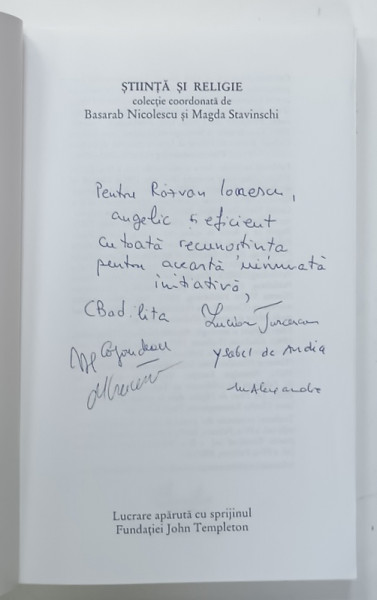 ȘTIINȚĂ ȘI RELIGIE
colecție coordonată de
Basarab Nicolescu și Magda Stavinschi
Pentru Răzvan Ionescu,
angelic și eficient
cu toată recunoștința
pentru această minunată
inițiativă,
CBadilita Lucian Turcescu
Ysabel de Andia
MAlexandre
Lucrare apărută cu sprijinul
Fundației John Templeton